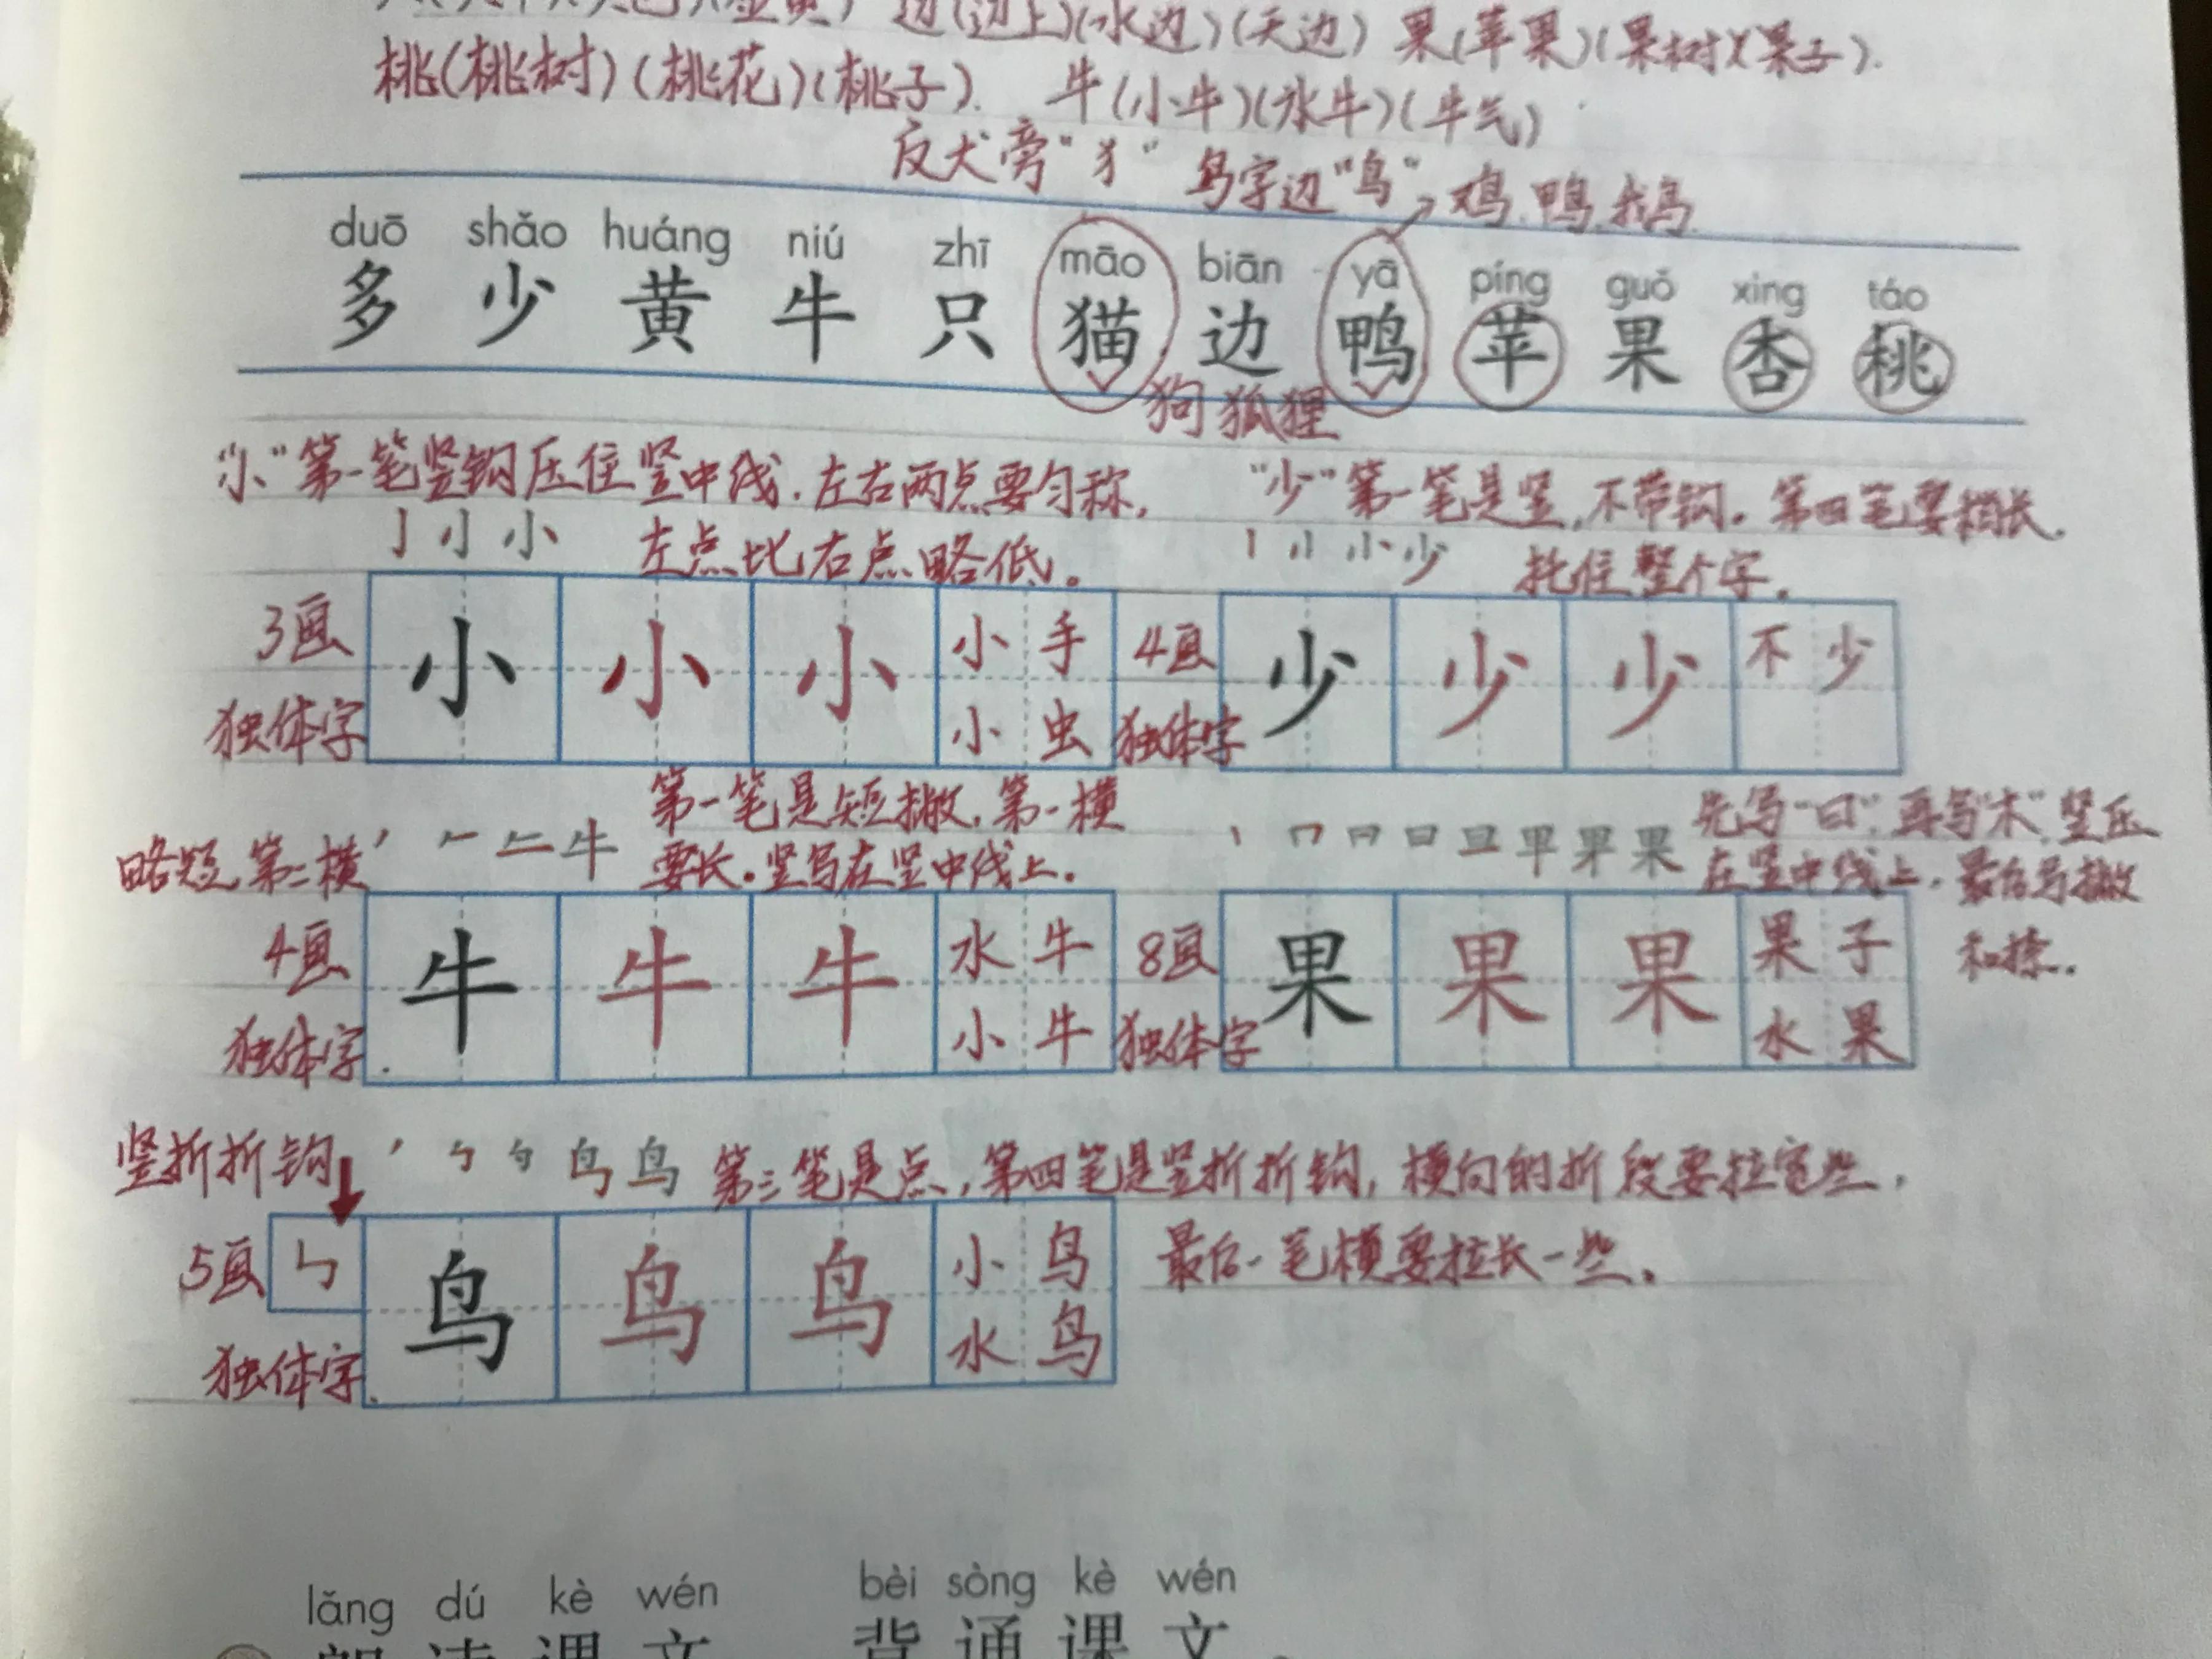 边(边上)(水边)(天边) 果(苹果)(果树)(果子).
桃(桃树)(桃花)(桃子). 牛(小牛)(水牛)(牛气)
反犬旁"犭" 鸟字边"鸟"→鸡.鸭.鹅
duō shǎo huáng niú zhī māo biān yā píng guǒ xìng táo
多 少 黄 牛 只 猫 边 鸭 苹 果 杏 桃
狗 狐狸
"小"第一笔竖钩压住竖中线.左右两点要匀称,
左点比右点略低。
"少"第一笔是竖,不带钩。第四笔要稍长.
托住整个字.
亅 小 小
丨 小 少
3画 小 小 小 小手 4画 少 少 少 不少
独体字 小虫 独体字
第一笔是短撇.第一横
略短.第二横
要长。竖写在竖中线上.
丿 牛
先写"曰",再写"木".竖压
在竖中线上.最后写撇
和捺.
丨 冂 曰 旦 甲 果 果
4画 牛 牛 牛 水牛 8画 果 果 果 果子
独体字. 小牛 独体字 水果
竖折折钩
丿 鸟 第三笔是点,第四笔是竖折折钩,横向的折段要拉宽些.
最后一笔横要拉长一些.
5画 ㄣ 鸟 鸟 鸟 小鸟
独体字. 水鸟
lǎng dú kè wén bèi sòng kè wén
朗 读 课 文 背 诵 课 文 。